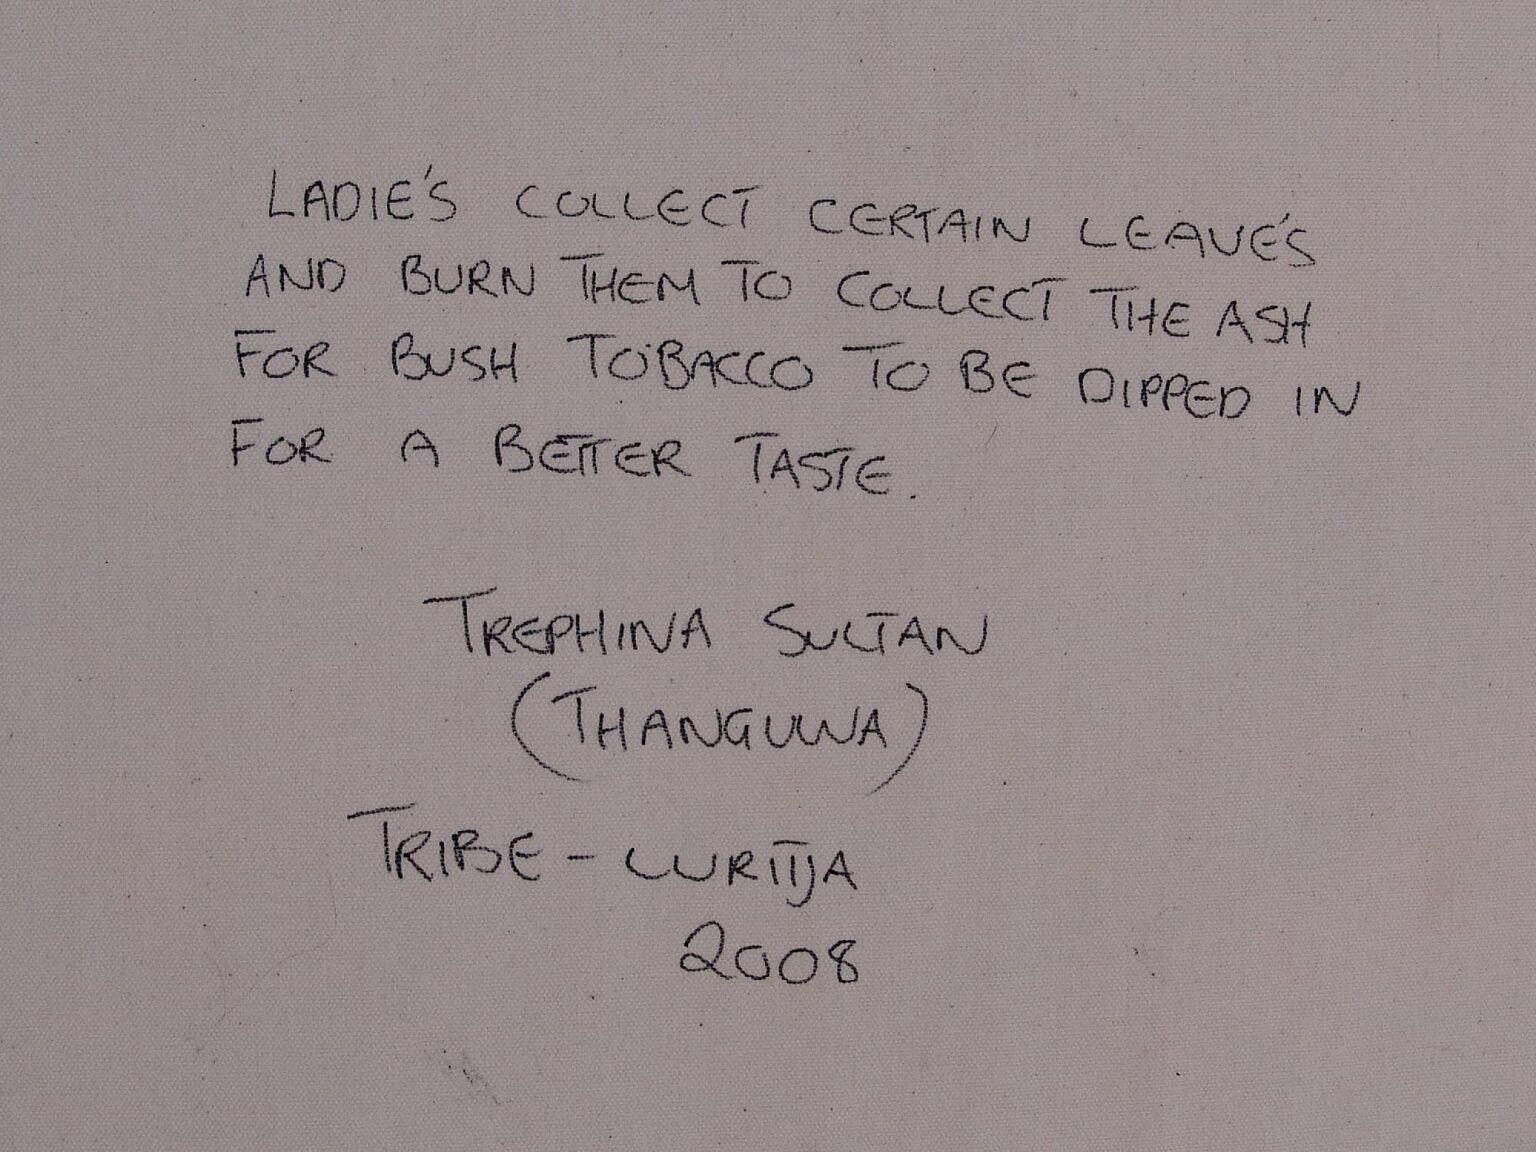 LADIE'S COLLECT CERTAIN LEAVE'S
AND BURN THEM TO COLLECT THE ASH
FOR BUSH TOBACCO TO BE DIPPED IN
FOR A BETTER TASTE.
TREPHINA SULTAN
(THANGUWA)
TRIBE - LURITJA
2008